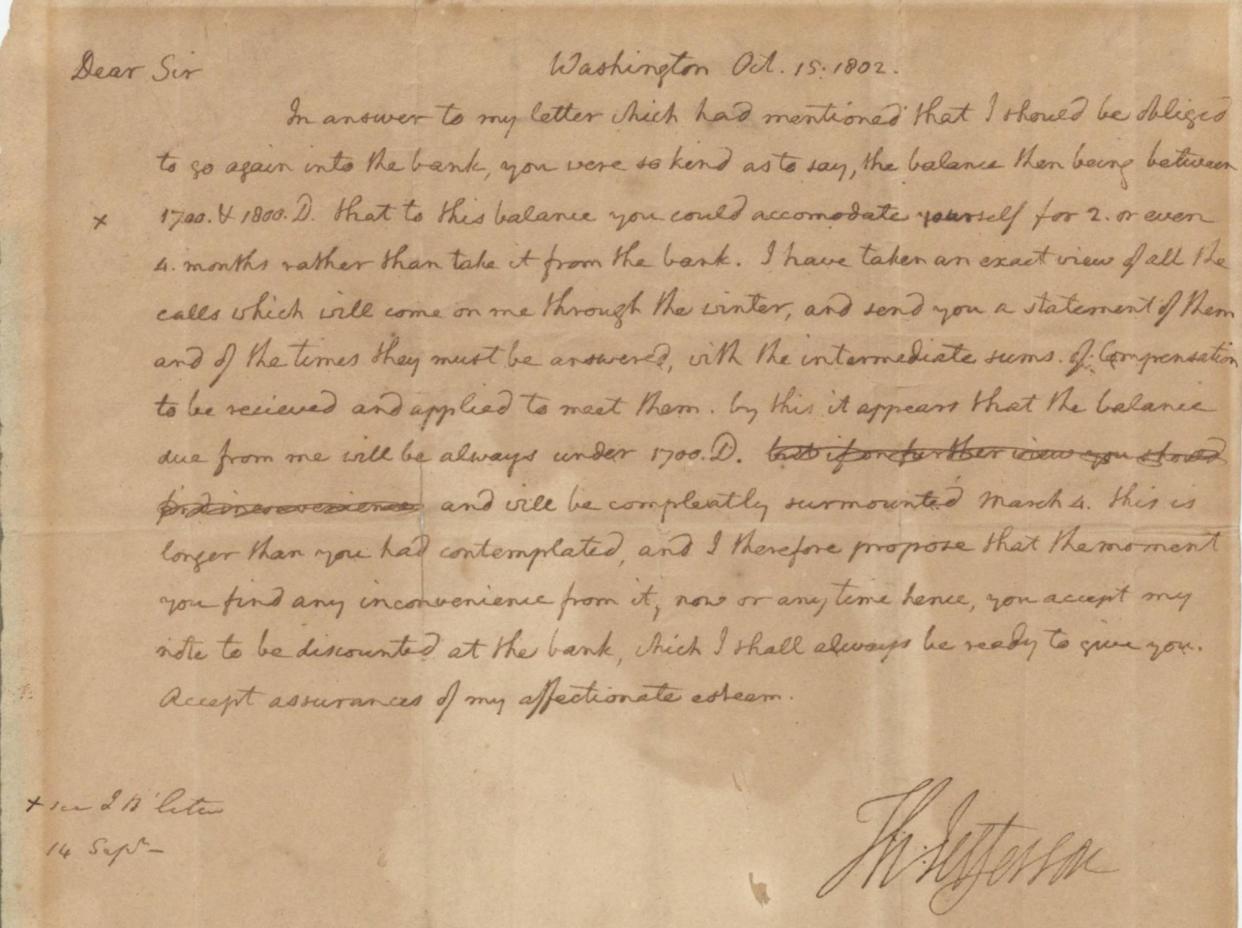 Dear Sir Washington Oct. 15. 1802.
In answer to my letter which had mentioned that I should be obliged
to go again into the bank, you were so kind as to say, the balance then being between
× 1700. & 1800. D. that to this balance you could accomodate yourself for 2. or even
4. months rather than take it from the bank. I have taken an exact view of all the
calls which will come on me through the winter, and send you a statement of them
and of the times they must be answered, with the intermediate sums. of Compensation
to be recieved and applied to meet them. by this it appears that the balance
due from me will be always under 1700. D. but if on further view you should
find inconvenience and will be compleatly surmounted March 4. this is
longer than you had contemplated, and I therefore propose that the moment
you find any inconvenience from it, now or any time hence, you accept my
note to be discounted at the bank, which I shall always be ready to give you.
Accept assurances of my affectionate esteem.
× see letter
14 Sepr
Th: Jefferson